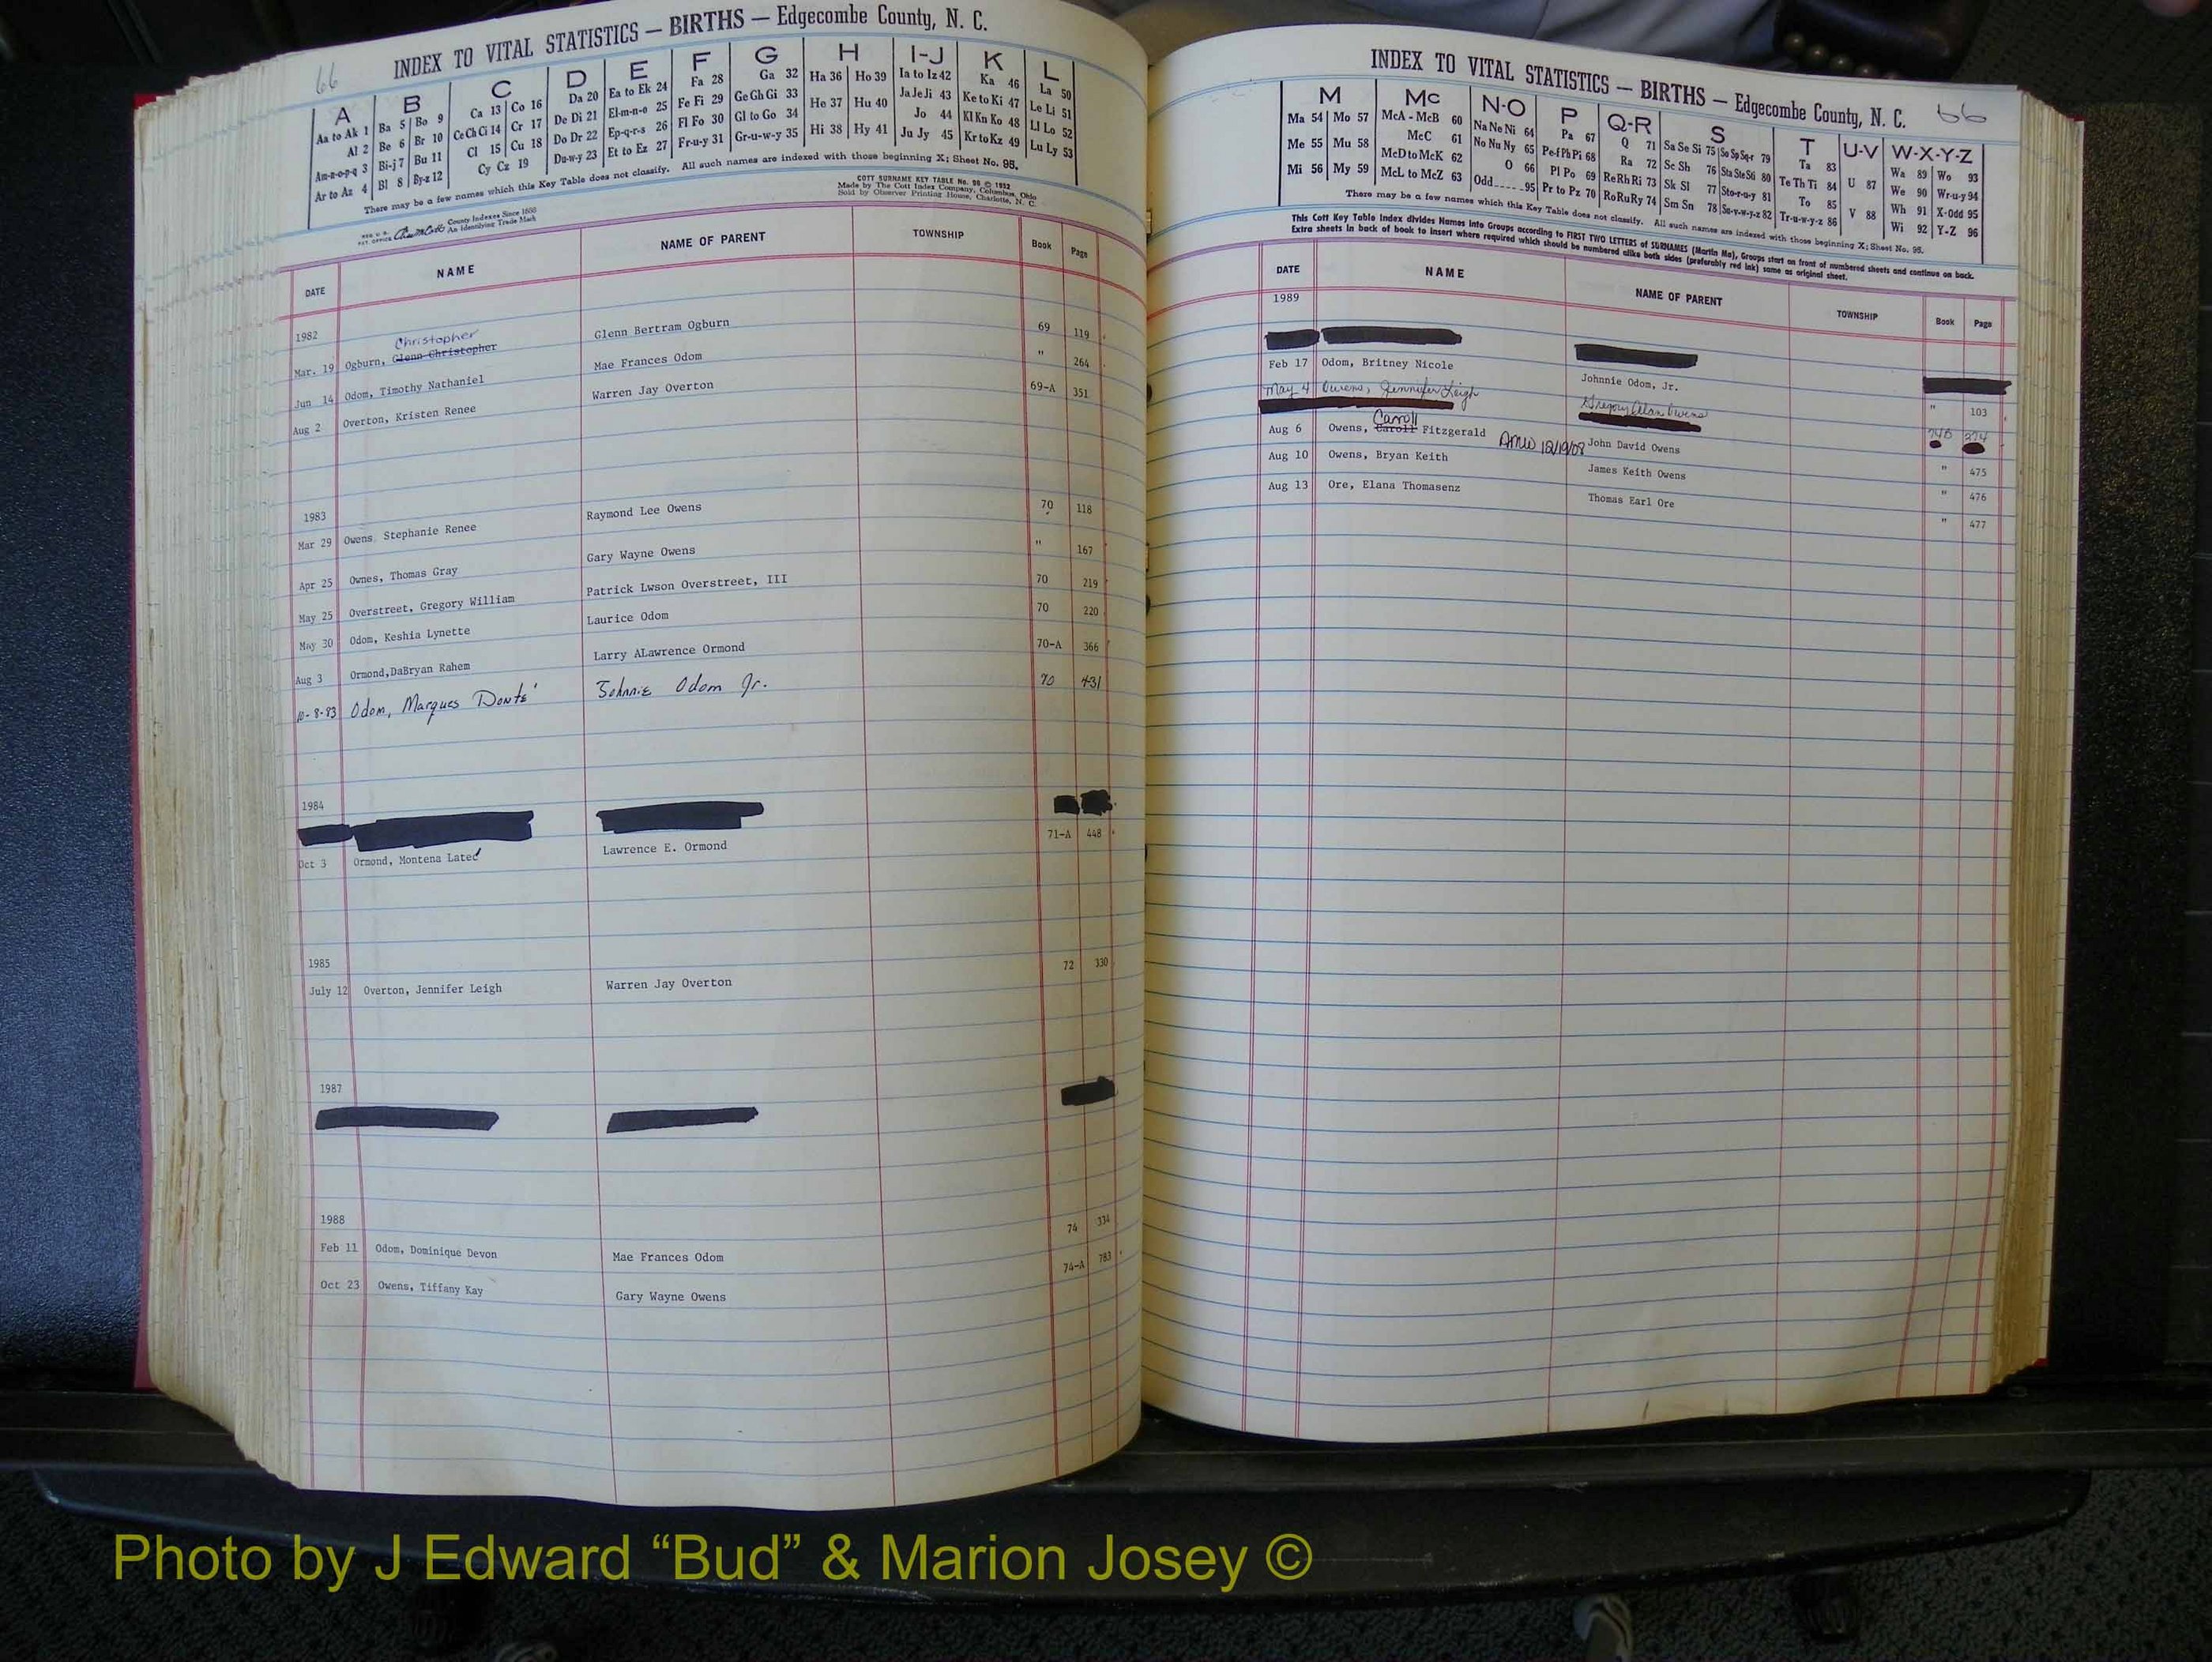 66
INDEX TO VITAL STATISTICS — BIRTHS — Edgecombe County, N. C.
A B C D E F G H I-J K L
Aa to Ak 1 Ba 5 Bo 9 Ca 13 Co 16 Da 20 Ea to Ek 24 Fa 28 Ga 32 Ha 36 Ho 39 Ia to Iz 42 Ka 46 La 50
Al 2 Be 6 Br 10 Ce Ch Ci 14 Cr 17 De Di 21 El-m-n-o 25 Fe Fi 29 Ge Gh Gi 33 He 37 Hu 40 Ja Je Ji 43 Ke to Ki 47 Le Li 51
Am-n-o-p-q 3 Bi-j 7 Bu 11 Cl 15 Cu 18 Do Dr 22 Ep-q-r-s 26 Fl Fo 30 Gl to Go 34 Hi 38 Hy 41 Jo 44 Kl Kn Ko 48 Ll Lo 52
Ar to Az 4 Bl 8 By-z 12 Cy Cz 19 Du-w-y 23 Et to Ez 27 Fr-u-y 31 Gr-u-w-y 35 Ju Jy 45 Kr to Kz 49 Lu Ly 53
There may be a few names which this Key Table does not classify. All such names are indexed with those beginning X; Sheet No. 95.
COTT SURNAME KEY TABLE No. 96 © 1952
Made by The Cott Index Company, Columbus, Ohio
Sold by Observer Printing House, Charlotte, N. C.
County Indexes Since 1888
An Identifying Trade Mark
DATE NAME NAME OF PARENT TOWNSHIP Book Page
1982
Christopher
Mar. 19 Ogburn, Glenn Christopher Glenn Bertram Ogburn 69 119
Jun 14 Odom, Timothy Nathaniel Mae Frances Odom " 264
Aug 2 Overton, Kristen Renee Warren Jay Overton 69-A 351
1983
Mar 29 Owens, Stephanie Renee Raymond Lee Owens 70 118
Apr 25 Ownes, Thomas Gray Gary Wayne Owens " 167
May 25 Overstreet, Gregory William Patrick Lwson Overstreet, III 70 219
May 30 Odom, Keshia Lynette Laurice Odom 70 220
Aug 3 Ormond,DaBryan Rahem Larry ALawrence Ormond 70-A 366
10-8-83 Odom, Marques Donte' Johnnie Odom Jr. 70 431
1984
Oct 3 Ormond, Montena Latec Lawrence E. Ormond 71-A 448
1985
July 12 Overton, Jennifer Leigh Warren Jay Overton 72 330
1987
1988
Feb 11 Odom, Dominique Devon Mae Frances Odom 74 334
Oct 23 Owens, Tiffany Kay Gary Wayne Owens 74-A 783
INDEX TO VITAL STATISTICS — BIRTHS — Edgecombe County, N. C.
66
M Mc N-O P Q-R S T U-V W-X-Y-Z
Ma 54 Mo 57 McA - McB 60 Na Ne Ni 64 Pa 67 Q 71 Sa Se Si 75 So Sp Sq-r 79 Ta 83 U 87 Wa 89 Wo 93
Me 55 Mu 58 McC 61 No Nu Ny 65 Pe-f Ph Pi 68 Ra 72 Sc Sh 76 Sta Ste Sti 80 Te Th Ti 84 V 88 We 90 Wr-u-y 94
Mi 56 My 59 McD to McK 62 O 66 Pl Po 69 Re Rh Ri 73 Sk Sl 77 Sto-r-u-y 81 To 85 Wh 91 X-Odd 95
McL to McZ 63 Odd 95 Pr to Pz 70 Ro Ru Ry 74 Sm Sn 78 Su-v-w-y-z 82 Tr-u-w-y-z 86 Wi 92 Y-Z 96
There may be a few names which this Key Table does not classify. All such names are indexed with those beginning X; Sheet No. 95.
This Cott Key Table Index divides Names into Groups according to FIRST TWO LETTERS of SURNAMES (Martin Ma), Groups start on front of numbered sheets and continue on back.
Extra sheets in back of book to insert where required which should be numbered alike both sides (preferably red ink) same as original sheet.
DATE NAME NAME OF PARENT TOWNSHIP Book Page
1989
Feb 17 Odom, Britney Nicole Johnnie Odom, Jr. " 103
May 4 Owens, Jennifer Leigh Gregory Alan Owens 74B 274
Carroll
Aug 6 Owens, Caroll Fitzgerald Amw 12/19/08 John David Owens " 475
Aug 10 Owens, Bryan Keith James Keith Owens " 476
Aug 13 Ore, Elana Thomasenz Thomas Earl Ore " 477
Photo by J Edward “Bud” & Marion Josey ©